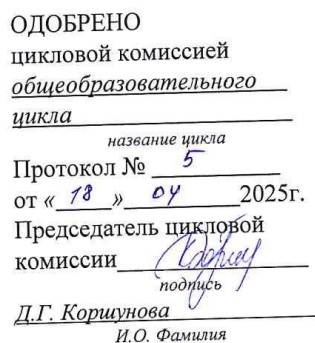 ОДОБРЕНО
цикловой комиссией
общеобразовательного
цикла
название цикла
Протокол № 5
от «18» 04 2025г.
Председатель цикловой
комиссии
подпись
Д.Г. Коршунова
И.О. Фамилия